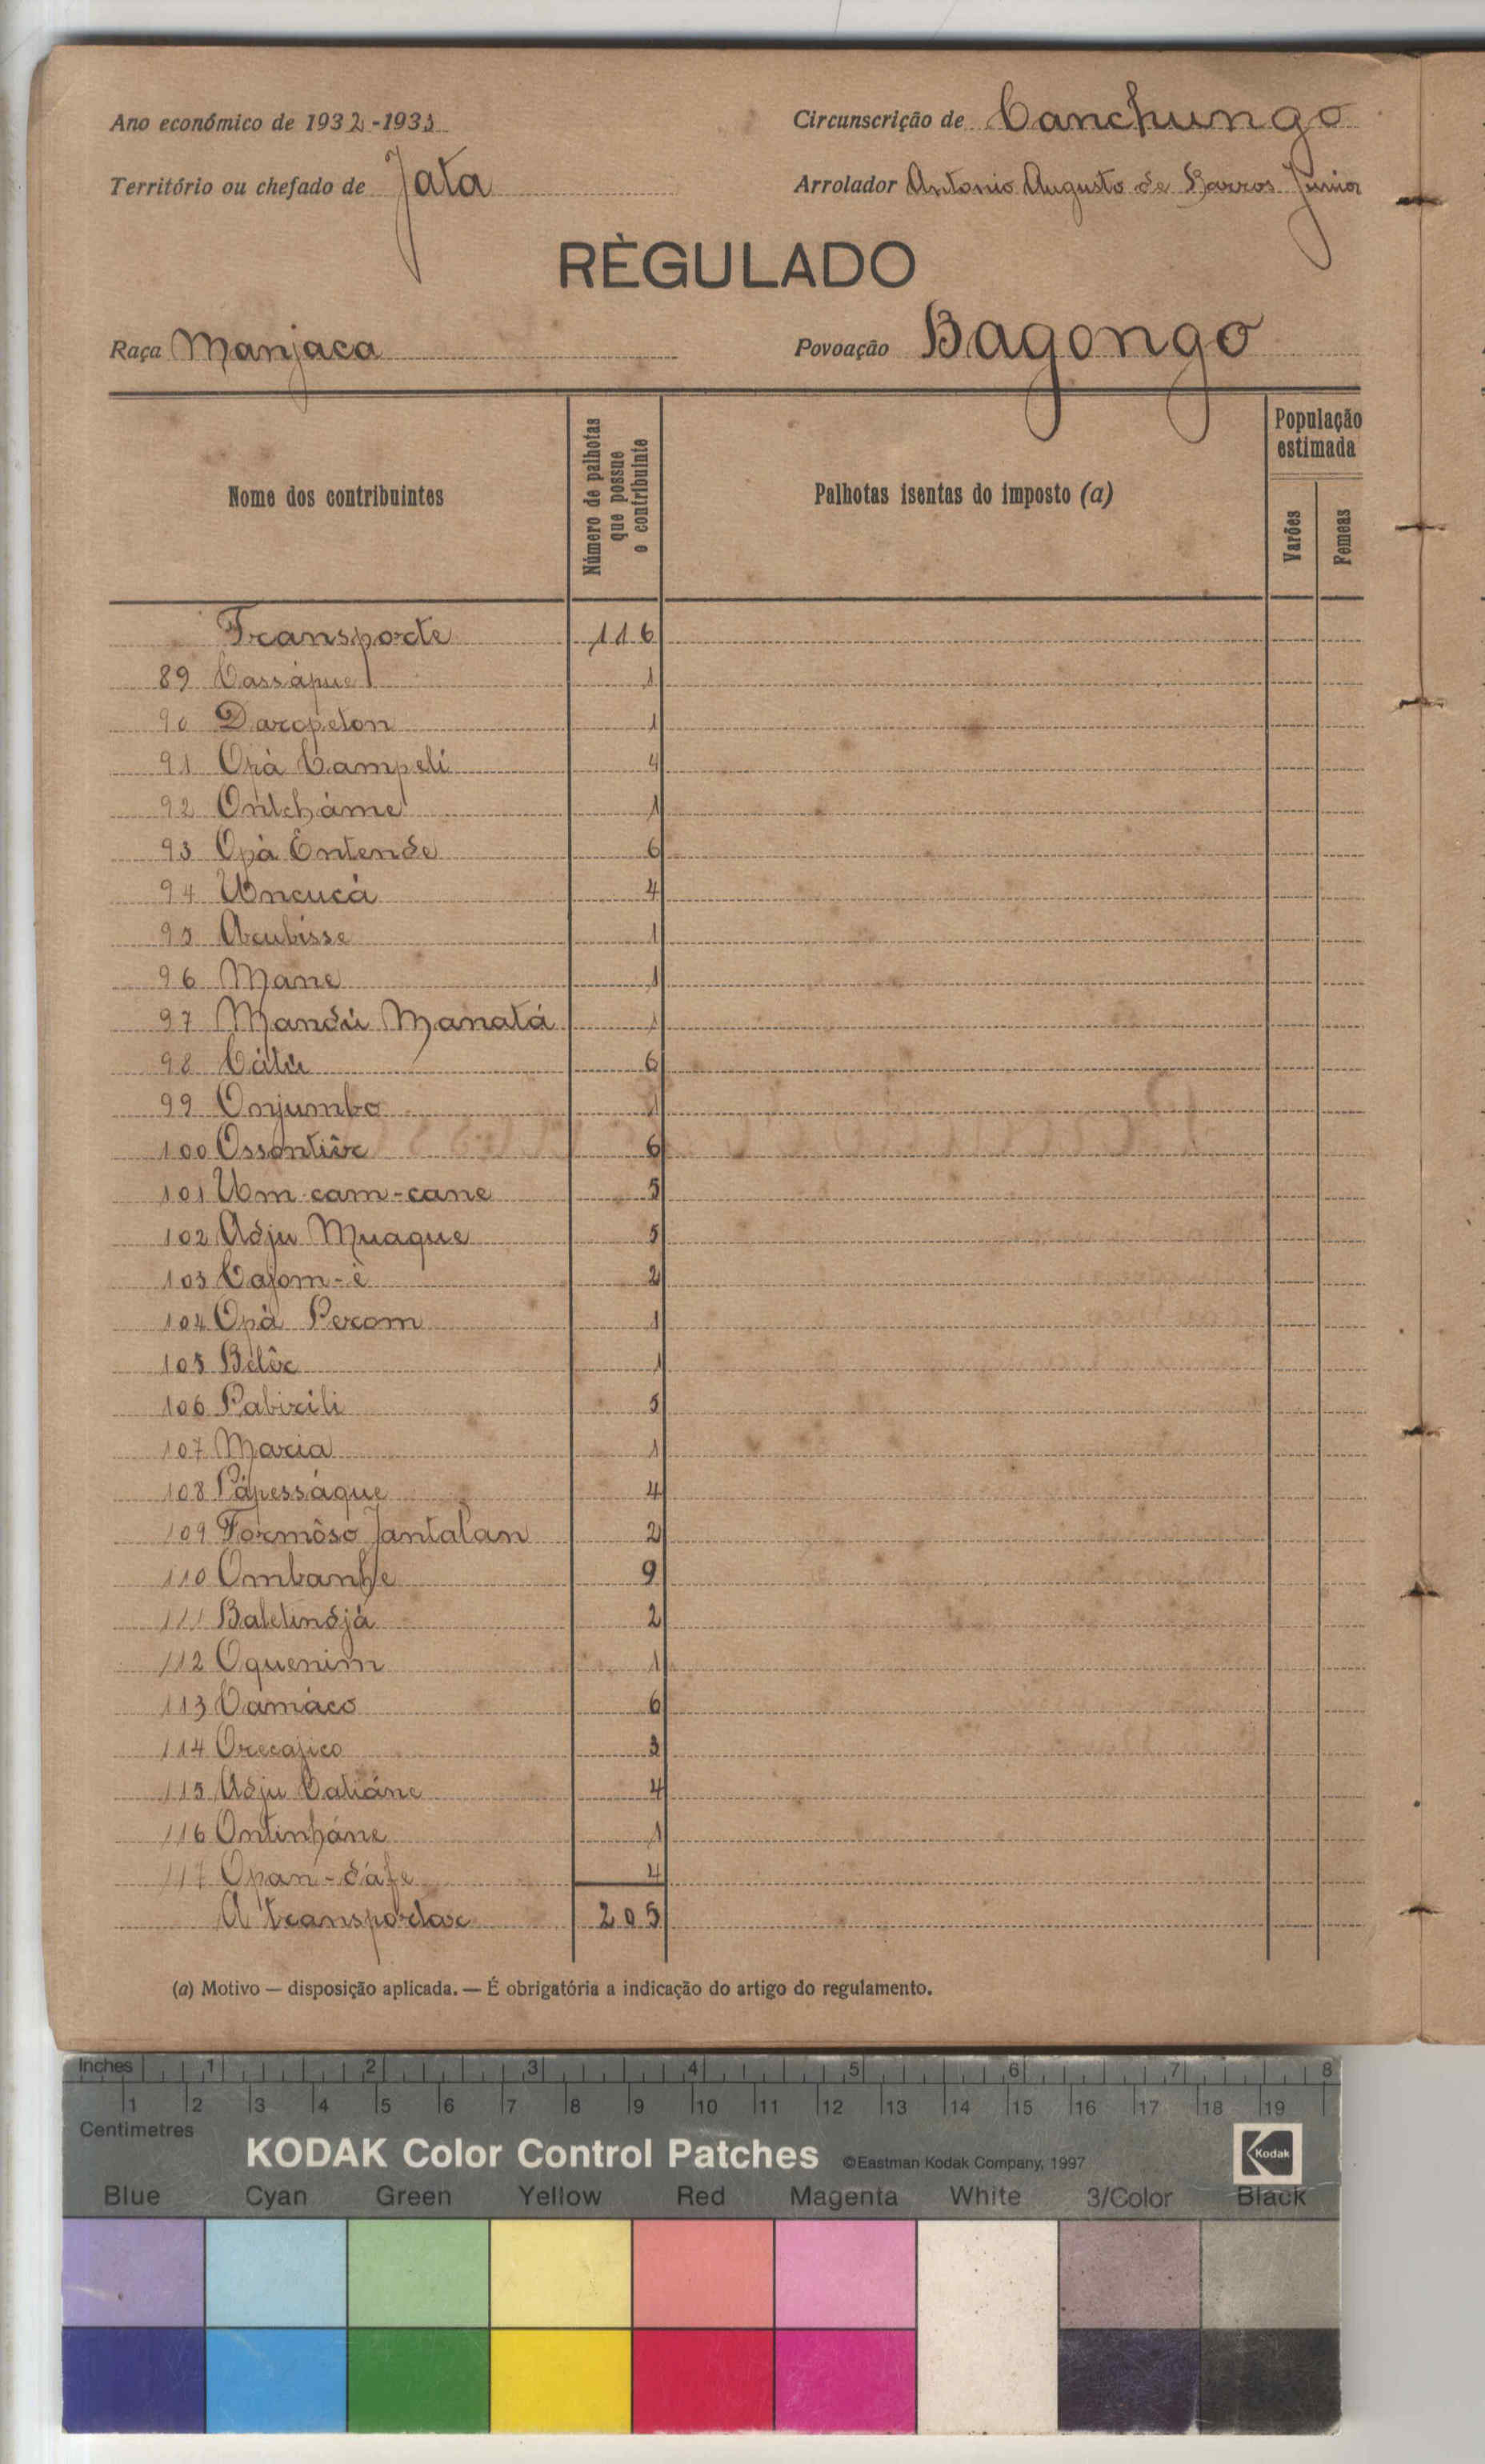 Ano económico de 1932-1933
Circunscrição de Canchungo
Território ou chefado de Jata
Arrolador Antonio Augusto de Barros Junior
RÈGULADO
Raça Manjaca
Povoação Bagongo
Nome dos contribuintes
Número de palhotas que possue o contribuinte
Palhotas isentas do imposto (a)
População estimada
Varões
Femeas
Transporte 116
89 Cassápue 1
90 Daropeton 1
91 Opà Campeli 4
92 Ontcháme 1
93 Opà Entende 6
94 Uncucà 4
95 Acubisse 1
96 Mane 1
97 Mandú Manatá 1
98 Cátú 6
99 Onjumbo 1
100 Ossontiêr 6
101 Um-cam-cane 5
102 Adju Muaque 5
103 Cajom-è 2
104 Opà Percom 1
105 Belêr 1
106 Pabirili 5
107 Maria 1
108 Pápessáque 4
109 Formôso Jantalan 2
110 Ombanhe 9
111 Baletindjà 2
112 Oquenim 1
113 Camáco 6
114 Orecajico 3
115 Adju Catiáne 4
116 Ontinháne 1
117 Opan-dáfe 4
A transportar 205
(a) Motivo — disposição aplicada. — É obrigatória a indicação do artigo do regulamento.
Inches 1 2 3 4 5 6 7 8
1 2 3 4 5 6 7 8 9 10 11 12 13 14 15 16 17 18 19
Centimetres
KODAK Color Control Patches ©Eastman Kodak Company, 1997 Kodak
Blue Cyan Green Yellow Red Magenta White 3/Color Black